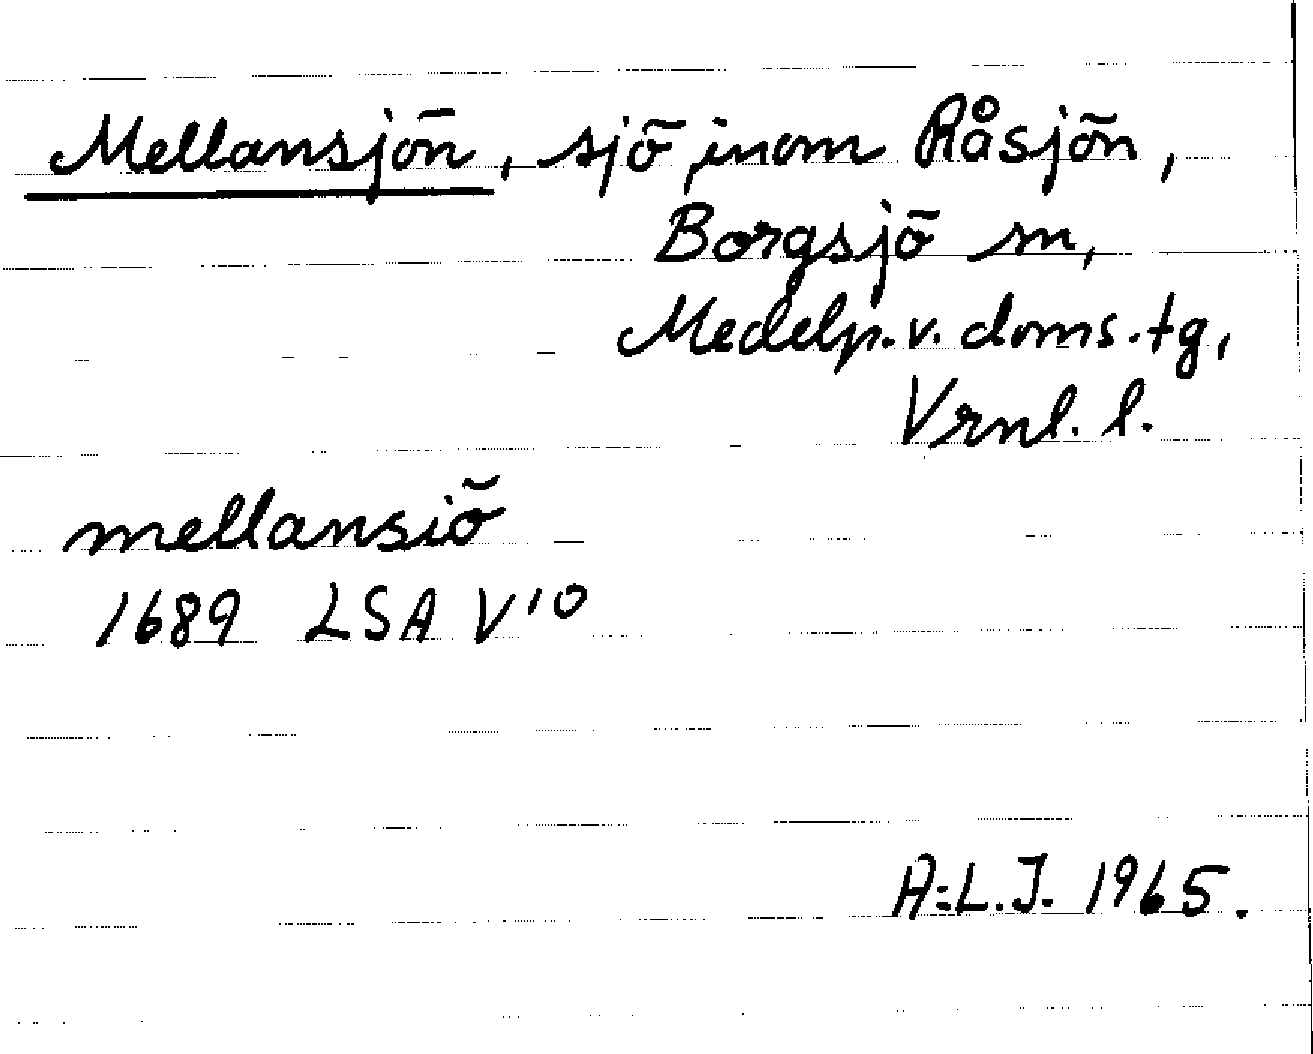 Mellansjön, sjö inom Råsjön,
Borgsjö sn,
Medelp. v. doms. tg,
Vrnl. l.
mellansiö
1689 LSA V10
A:L.J. 1965.